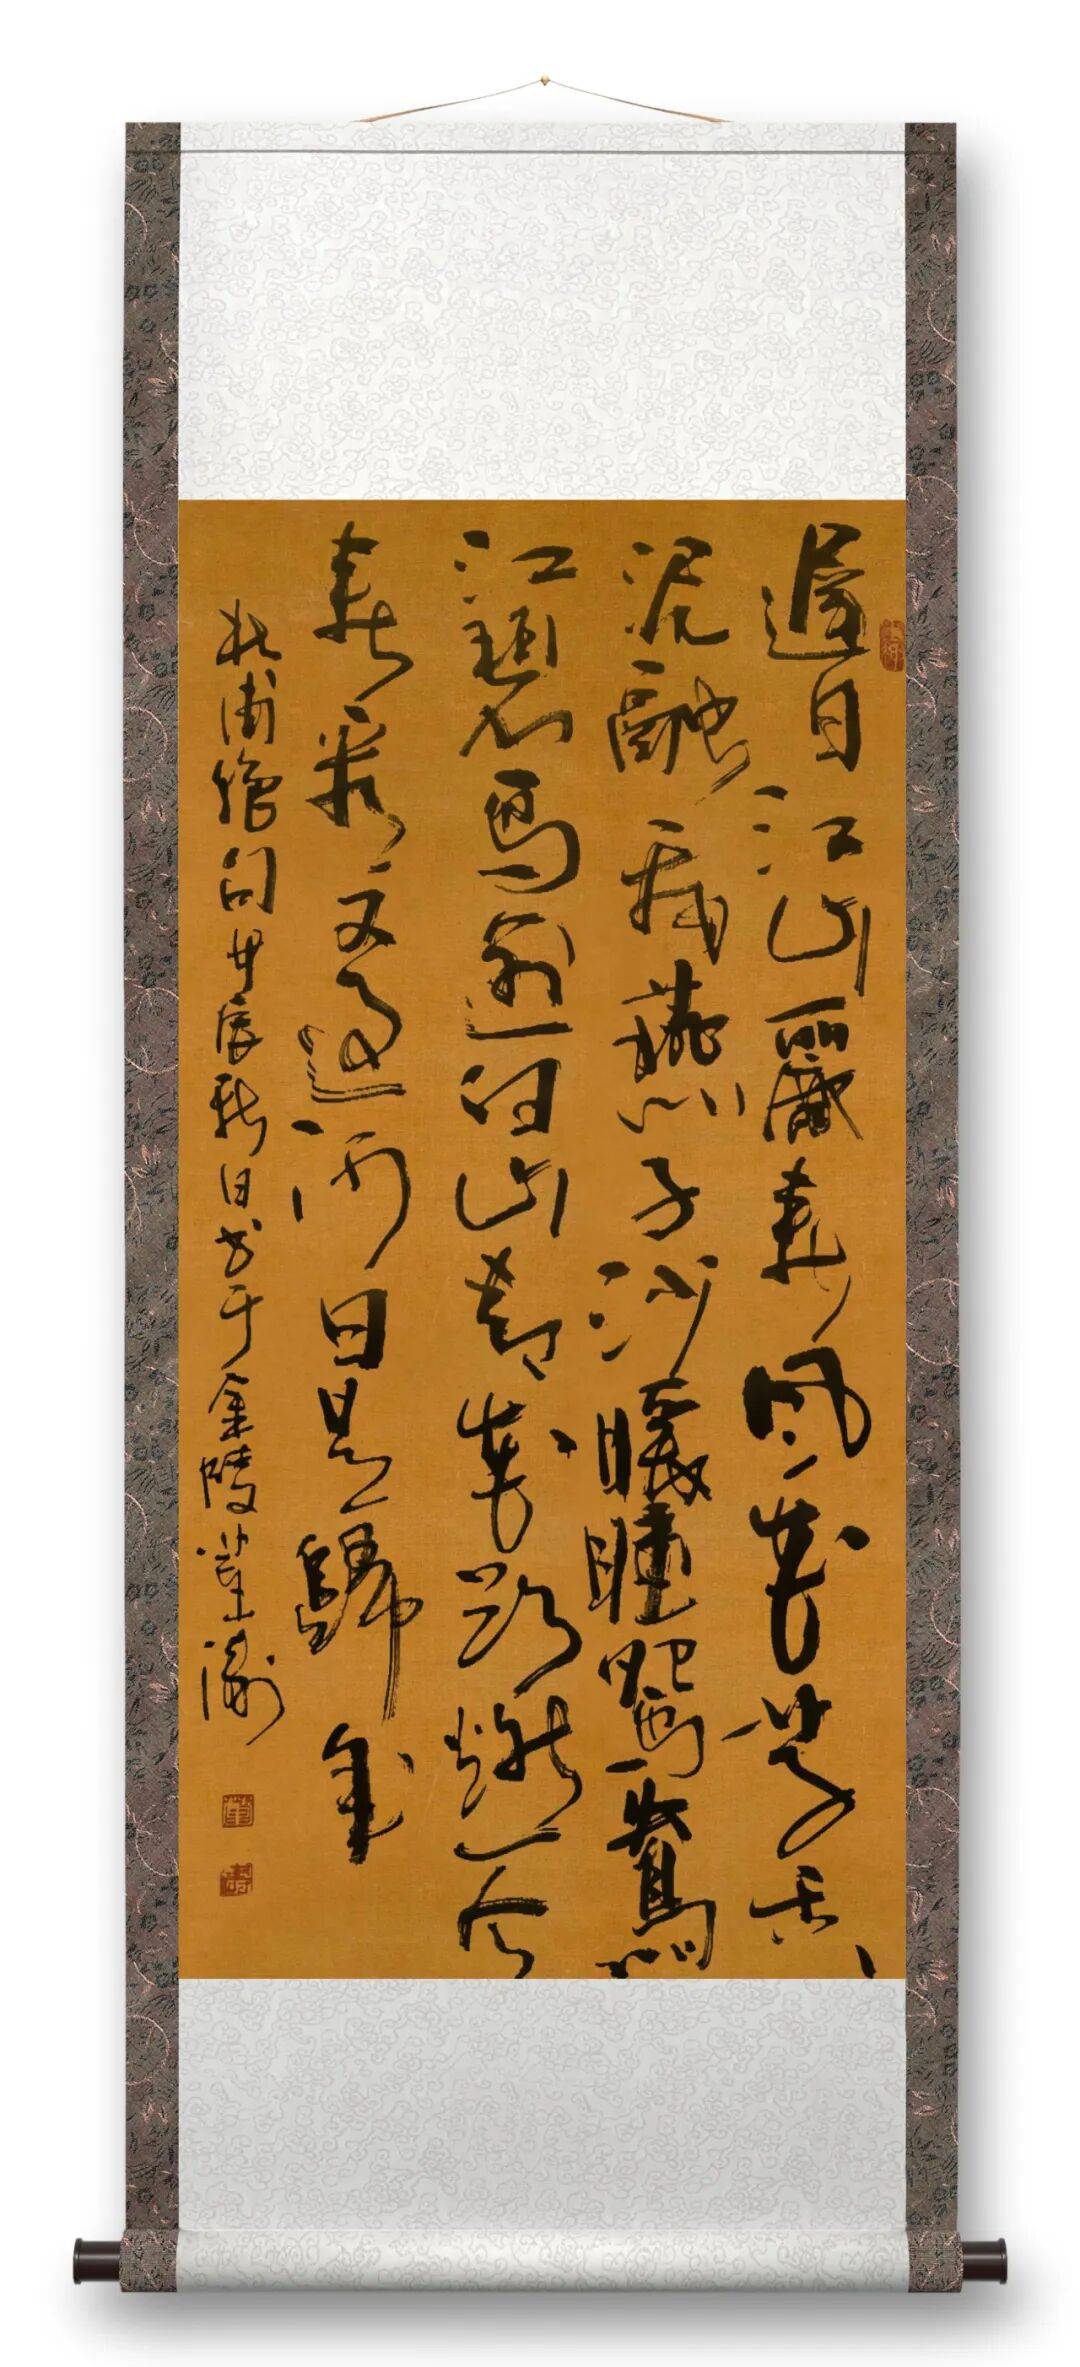 遲日江山麗春風花草香
泥融飛燕子沙暖睡鴛鴦
江碧鳥逾白山青花欲燃今
春看又過何日是歸年
杜甫絕句甲辰秋日書于金陵董